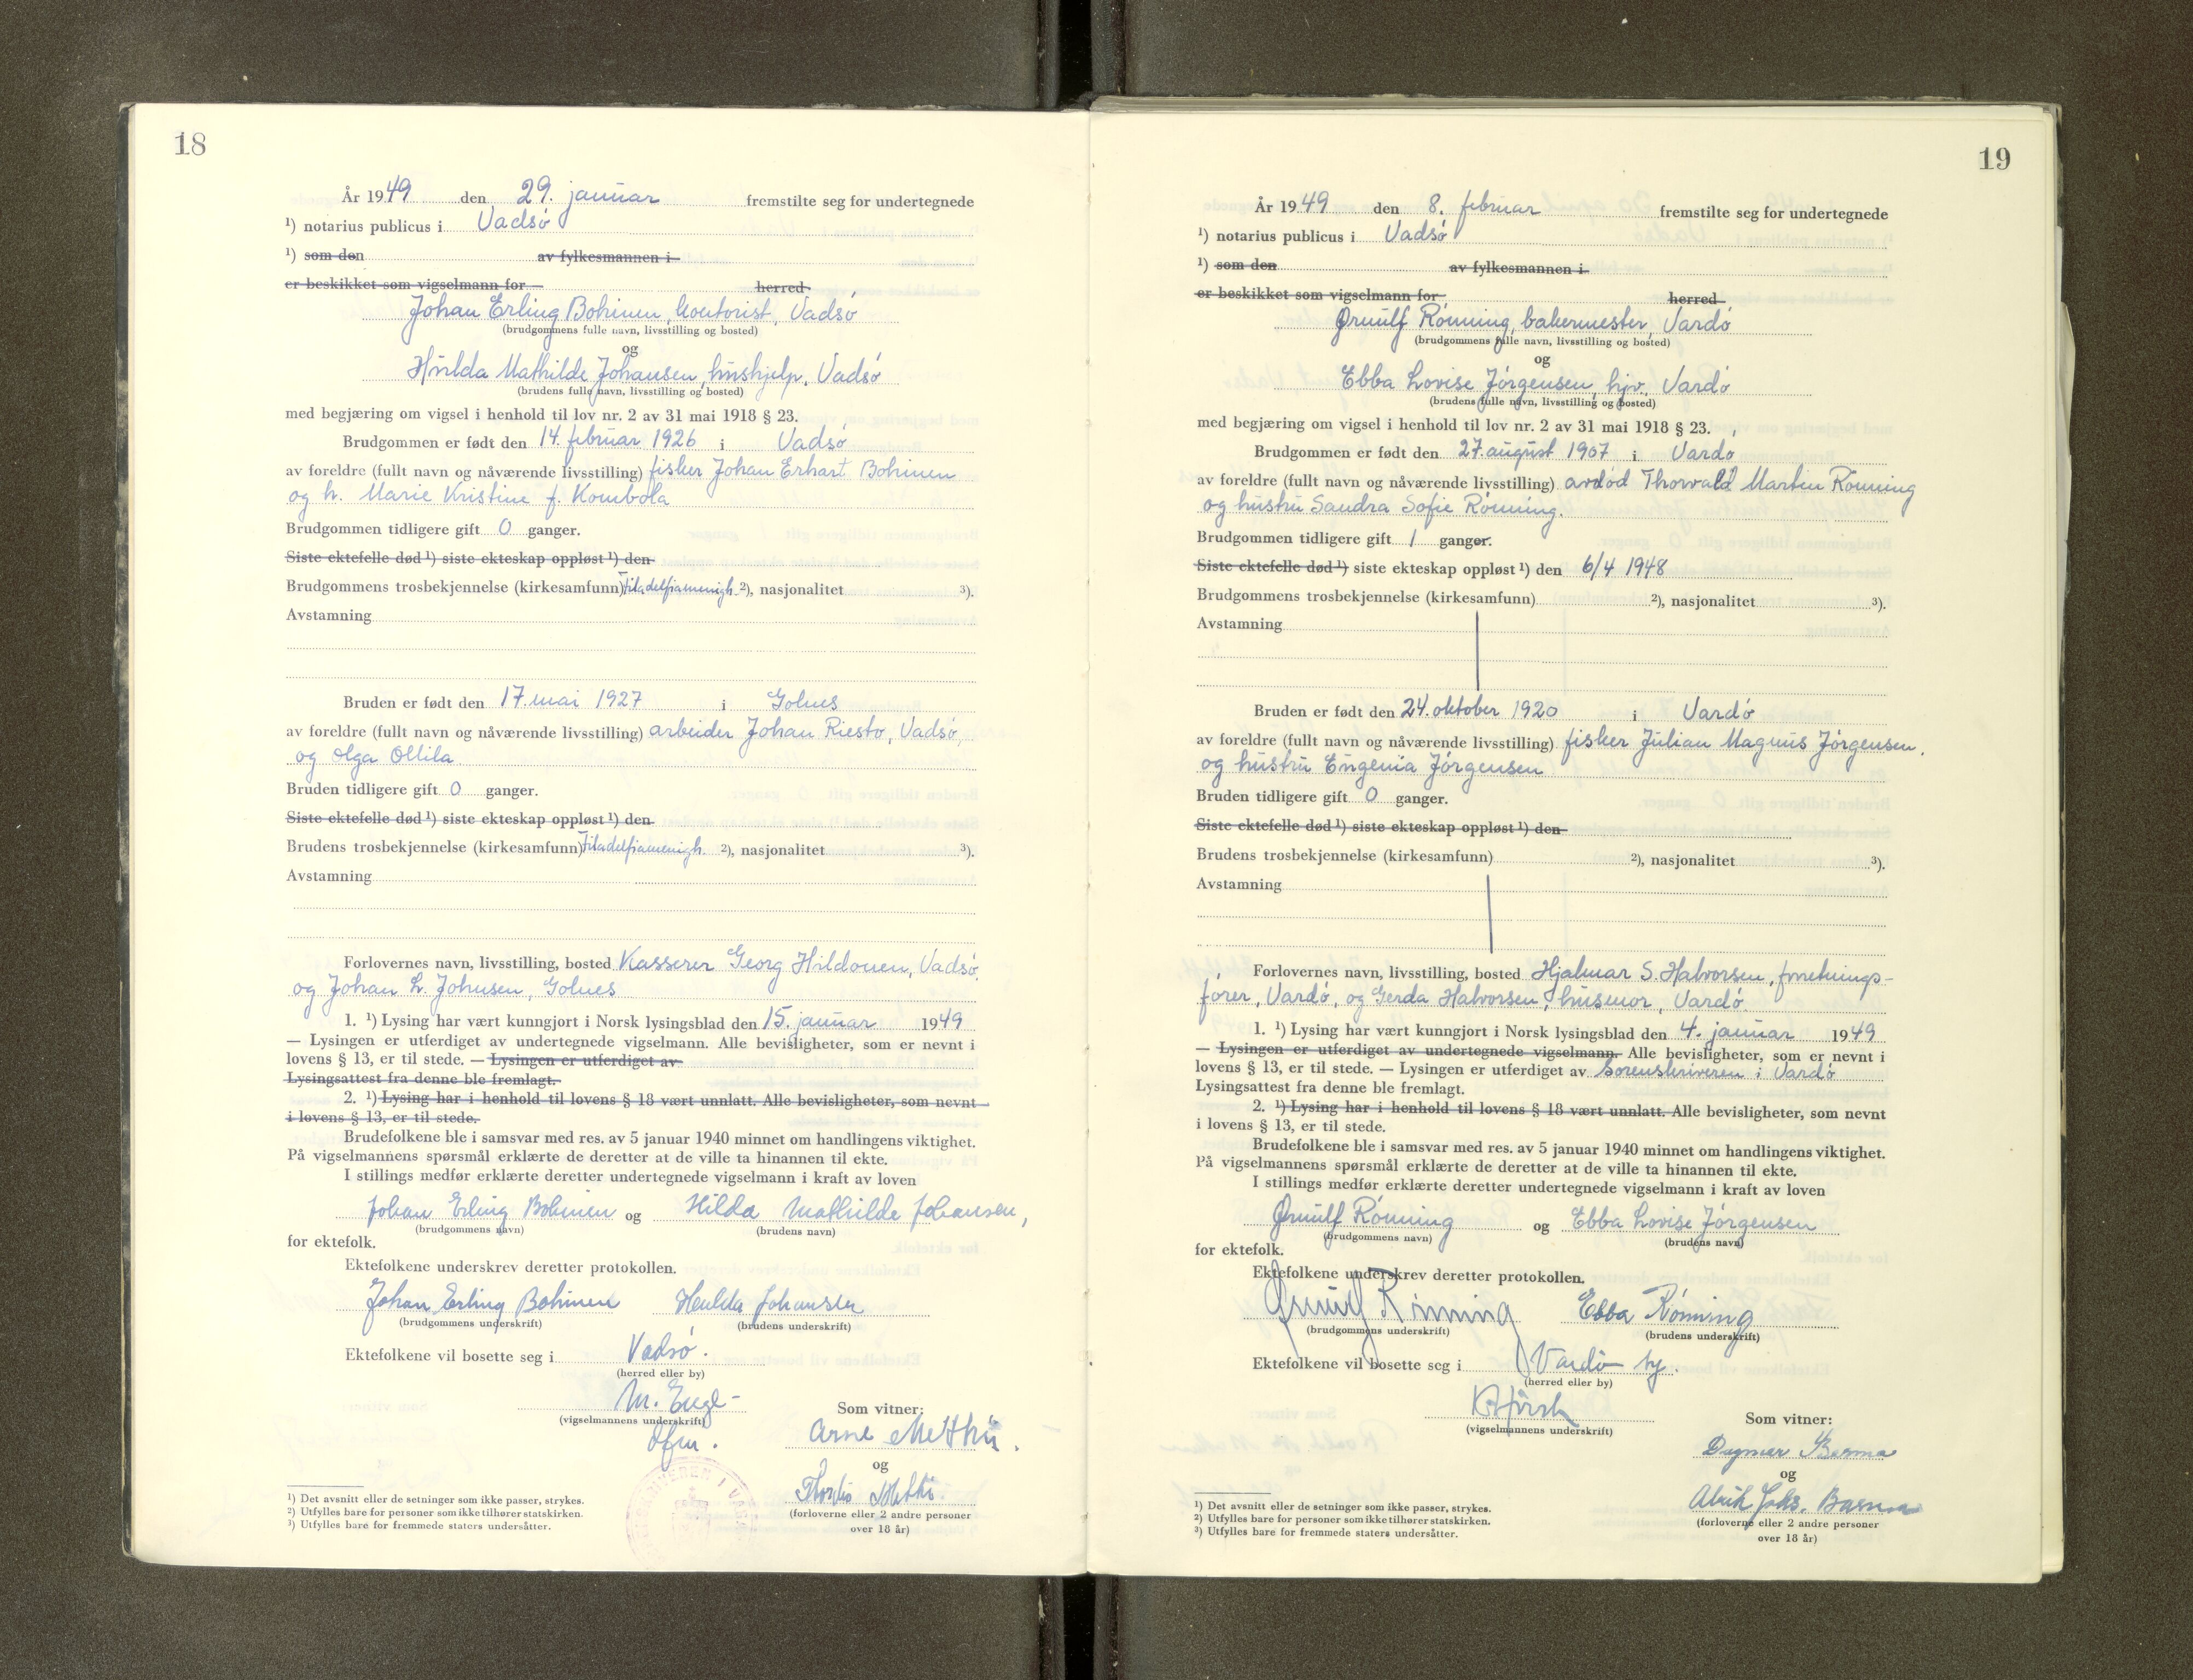 18
År 1949 den 29. januar fremstilte seg for undertegnede
¹) notarius publicus i Vadsø
¹) som den av fylkesmannen i
er beskikket som vigselmann for herred
Johan Erling Bohinen, kontorist, Vadsø
(brudgommens fulle navn, livsstilling og bosted)
og
Hulda Mathilde Johansen, hushjelp, Vadsø
(brudens fulle navn, livsstilling og bosted)
med begjæring om vigsel i henhold til lov nr. 2 av 31 mai 1918 § 23.
Brudgommen er født den 14. februar 1926 i Vadsø
av foreldre (fullt navn og nåværende livsstilling) fisker Johan Erhart Bohinen
og h. Marie Kristine f. Kombola
Brudgommen tidligere gift 0 ganger.
Siste ektefelle død ¹) siste ekteskap oppløst ¹) den
Brudgommens trosbekjennelse (kirkesamfunn) Filadelfiamenigh. ²), nasjonalitet ³).
Avstamning
Bruden er født den 17. mai 1927 i Golnes
av foreldre (fullt navn og nåværende livsstilling) arbeider Johan Riesto, Vadsø,
og Olga Ollila
Bruden tidligere gift 0 ganger.
Siste ektefelle død ¹) siste ekteskap oppløst ¹) den
Brudens trosbekjennelse (kirkesamfunn) Filadelfiamenigh. ²), nasjonalitet ³).
Avstamning
Forlovernes navn, livsstilling, bosted Kasserer Georg Hildonen, Vadsø
og Johan L. Johnsen, Golnes
1. ¹) Lysing har vært kunngjort i Norsk lysingsblad den 15. januar 1949
— Lysingen er utferdiget av undertegnede vigselmann. Alle bevisligheter, som er nevnt i
lovens § 13, er til stede. — Lysingen er utferdiget av
Lysingsattest fra denne ble fremlagt.
2. ¹) Lysing har i henhold til lovens § 18 vært unnlatt. Alle bevisligheter, som nevnt
i lovens § 13, er til stede.
Brudefolkene ble i samsvar med res. av 5 januar 1940 minnet om handlingens viktighet.
På vigselmannens spørsmål erklærte de deretter at de ville ta hinannen til ekte.
I stillings medfør erklærte deretter undertegnede vigselmann i kraft av loven
Johan Erling Bohinen og Hilda Mathilde Johansen,
(brudgommens navn) (brudens navn)
for ektefolk.
Ektefolkene underskrev deretter protokollen.
Johan Erling Bohinen Hulda Johansen
(brudgommens underskrift) (brudens underskrift)
Ektefolkene vil bosette seg i Vadsø.
(herred eller by)
M. Enge
(vigselmannens underskrift)
Som vitner:
Arne Methi.
og
Thordis Methi
(forloverne eller 2 andre personer
over 18 år)
¹) Det avsnitt eller de setninger som ikke passer, strykes.
²) Utfylles bare for personer som ikke tilhører statskirken.
³) Utfylles bare for fremmede staters undersåtter.
19
År 1949 den 8. februar fremstilte seg for undertegnede
¹) notarius publicus i Vadsø
¹) som den av fylkesmannen i
er beskikket som vigselmann for herred
Ørnulf Rønning, bakermester, Vardø
(brudgommens fulle navn, livsstilling og bosted)
og
Ebba Lovise Jørgensen, hjv., Vardø
(brudens fulle navn, livsstilling og bosted)
med begjæring om vigsel i henhold til lov nr. 2 av 31 mai 1918 § 23.
Brudgommen er født den 27. august 1907 i Vardø
av foreldre (fullt navn og nåværende livsstilling) avdød Thorvald Martin Rønning
og hustru Sandra Sofie Rønning.
Brudgommen tidligere gift 1 ganger.
Siste ektefelle død ¹) siste ekteskap oppløst ¹) den 6/4 1948
Brudgommens trosbekjennelse (kirkesamfunn) ²), nasjonalitet ³).
Avstamning
Bruden er født den 24. oktober 1920 i Vardø
av foreldre (fullt navn og nåværende livsstilling) fisker Julian Magnus Jørgensen,
og hustru Eugenia Jørgensen
Bruden tidligere gift 0 ganger.
Siste ektefelle død ¹) siste ekteskap oppløst ¹) den
Brudens trosbekjennelse (kirkesamfunn) ²), nasjonalitet ³).
Avstamning
Forlovernes navn, livsstilling, bosted Hjalmar S. Halvorsen, forretnings-
fører, Vardø, og Gerda Halvorsen, husmor, Vardø.
1. ¹) Lysing har vært kunngjort i Norsk lysingsblad den 4. januar 1949
— Lysingen er utferdiget av undertegnede vigselmann. Alle bevisligheter, som er nevnt i
lovens § 13, er til stede. — Lysingen er utferdiget av Sorenskriveren i Vardø
Lysingsattest fra denne ble fremlagt.
2. ¹) Lysing har i henhold til lovens § 18 vært unnlatt. Alle bevisligheter, som nevnt
i lovens § 13, er til stede.
Brudefolkene ble i samsvar med res. av 5 januar 1940 minnet om handlingens viktighet.
På vigselmannens spørsmål erklærte de deretter at de ville ta hinannen til ekte.
I stillings medfør erklærte deretter undertegnede vigselmann i kraft av loven
Ørnulf Rønning og Ebba Lovise Jørgensen
(brudgommens navn) (brudens navn)
for ektefolk.
Ektefolkene underskrev deretter protokollen.
Ørnulf Rønning Ebba Rønning
(brudgommens underskrift) (brudens underskrift)
Ektefolkene vil bosette seg i Vardø by.
(herred eller by)
(vigselmannens underskrift)
Som vitner:
Dagmar Basma
og
Alrik Joks. Basma
(forloverne eller 2 andre personer
over 18 år)
¹) Det avsnitt eller de setninger som ikke passer, strykes.
²) Utfylles bare for personer som ikke tilhører statskirken.
³) Utfylles bare for fremmede staters undersåtter.